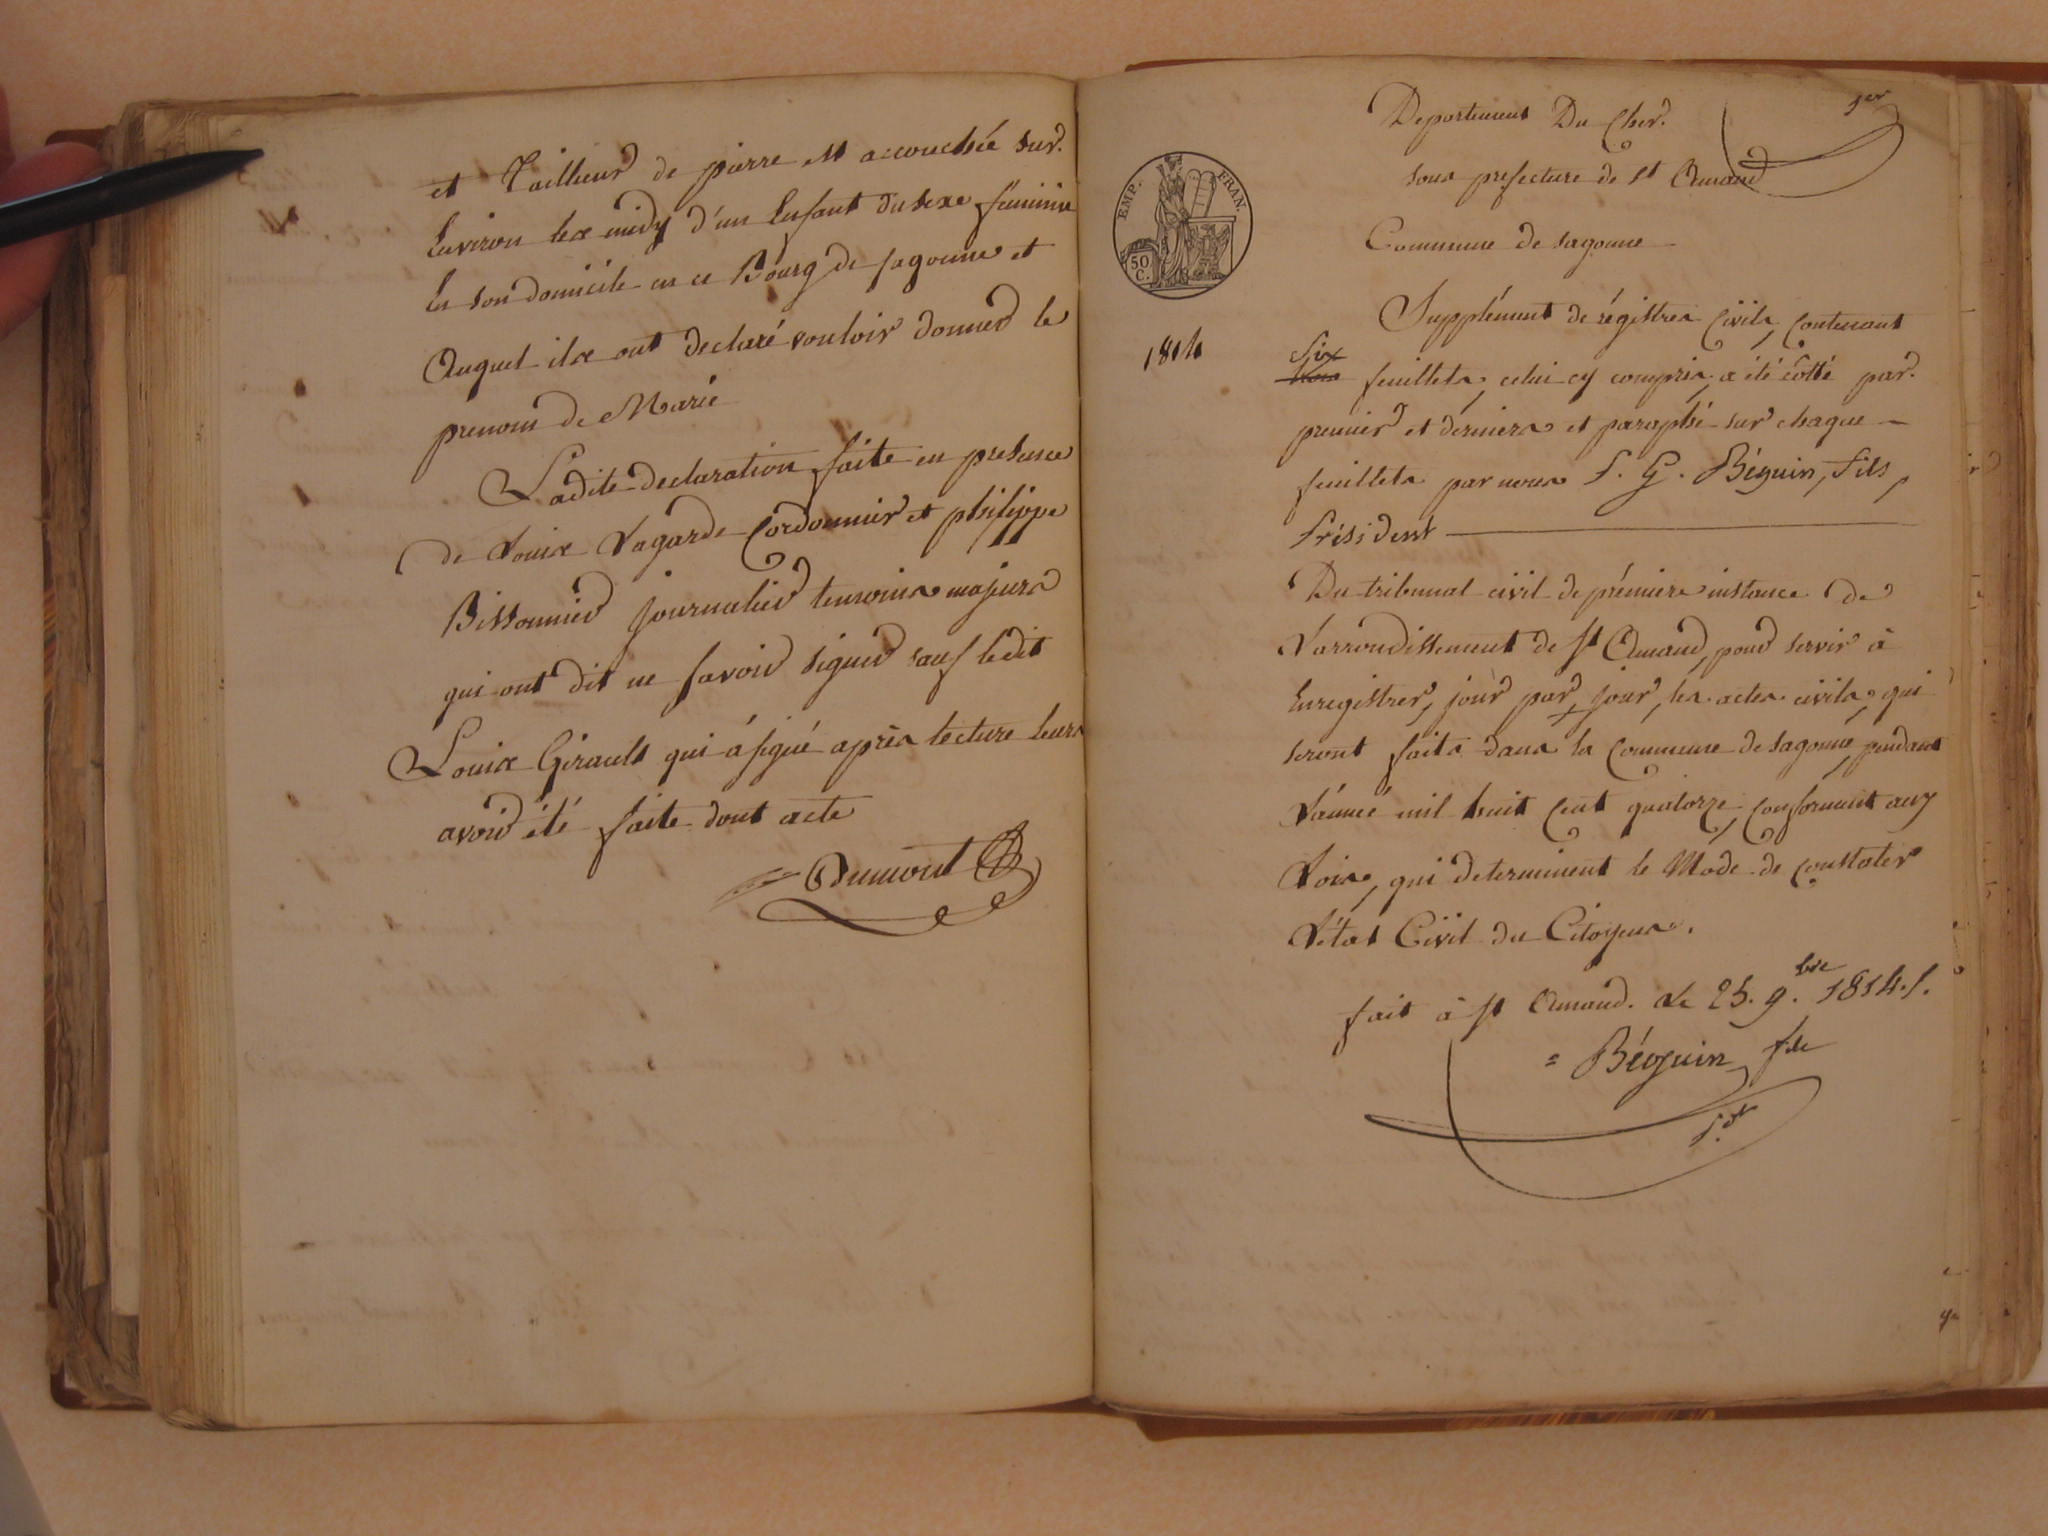 et Tailleur de pierre est accouchée sur
Environ les midy d'un Enfant du sexe feminin
En son domicile en ce Bourg de sagonne et
Auquel ils ont declaré vouloir donner le
prenom de Marie
Ladite declaration faite en presence
de Louis Lagarde Cordonnier et philippe
Bissonnier journalier temoins majeurs
qui ont dit ne savoir signer sauf ledit
Louis Girault qui á signé après lecture leurs
avoir été faite dont acte
Dumont
1er
Departement Du Cher.
sous prefecture de St Amand
Commune de sagonne
EMP. FRAN.
50 C.
1814
Supplément de régistres Civils, Contenant
Six
trois feuillets, celui cy compris, a été côtté par
premier et derniers et paraphé sur chaque
feuillets par nous F. G. Béguin, fils,
Président
Du tribunal civil de prémiere instance de
L'arrondissement de St Amand, pour servir à
Enregistrer, jour par jour, les actes civils, qui
seront faits dans la Commune de sagonne, pendant
L'année mil huit Cent quatorze, Conformént aux
Loix, qui determinent le Mode de Constater
L'état Civil du Citoyens.
fait à St Amand. Le 25. 9.bre 1814.
= Béguin fils
P.dt